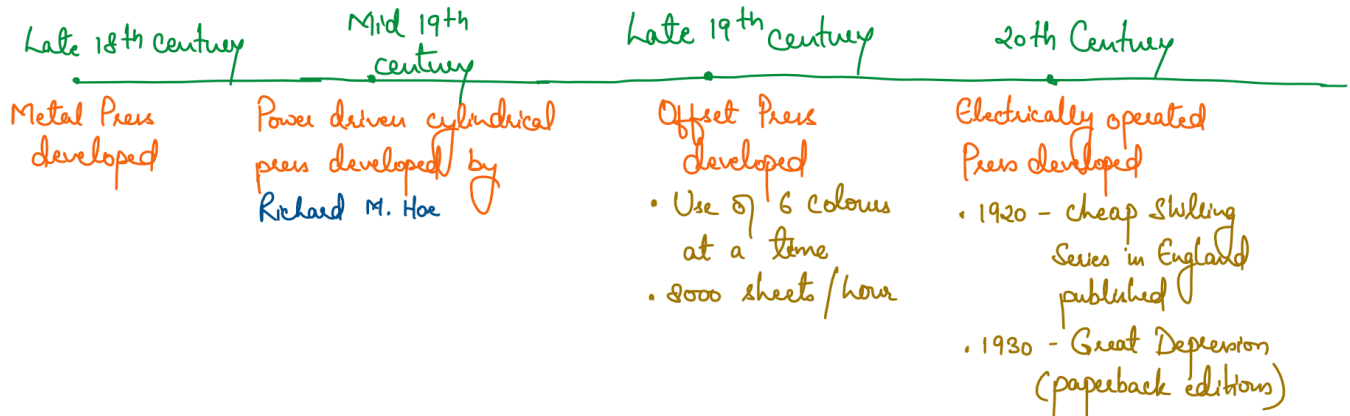 Late 18th century
Mid 19th
century
Late 19th century
20th Century
Metal Press
developed
Power driven cylindrical
press developed by
Richard M. Hoe
Offset Press
developed
• Use of 6 colours
at a time
• 8000 sheets/hour
Electrically operated
Press developed
• 1920 - cheap Shilling
Series in England
published
• 1930 - Great Depression
(paperback editions)